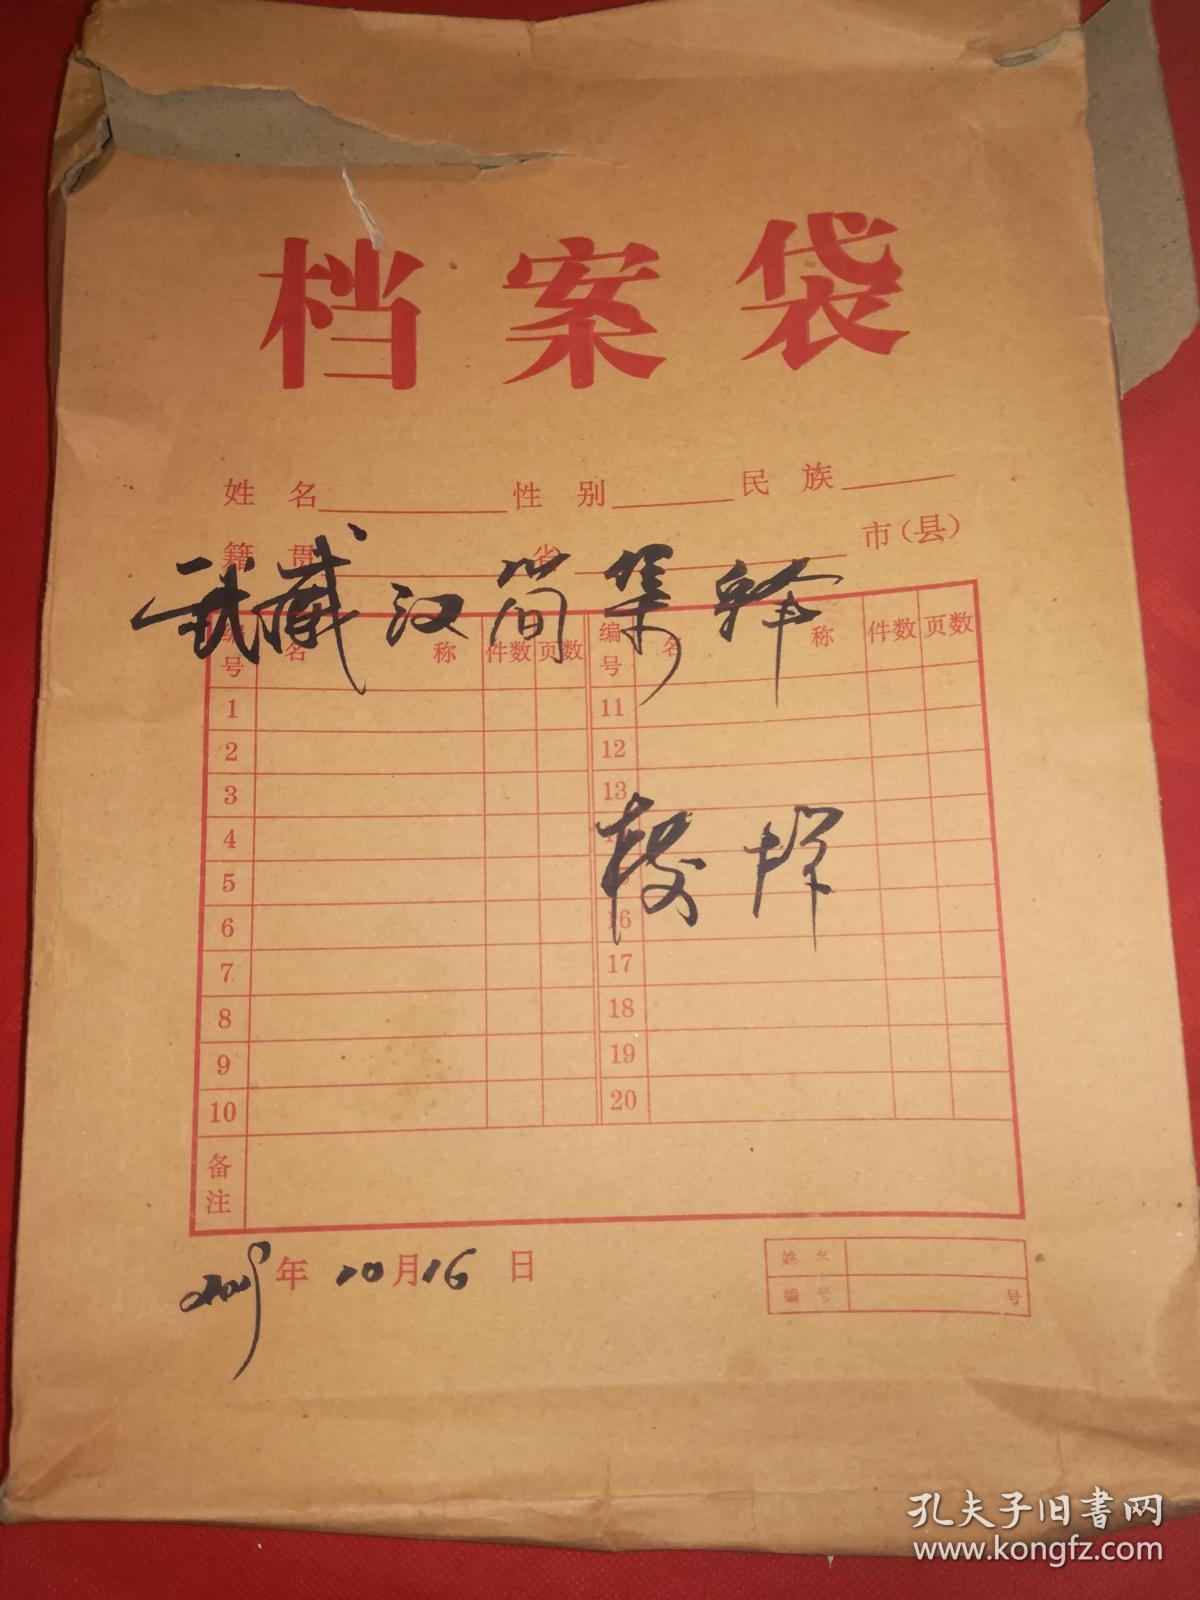 档案袋
姓名 性别 民族
籍贯 省 市(县)
武威汉简集释
编号 名称 件数 页数 编号 名称 件数 页数
1 11
2 12
3 13
4
5
校样
6 16
7 17
8 18
9 19
10 20
备注
年10月16日
姓名
编号 号
孔夫子旧书网
www.kongfz.com